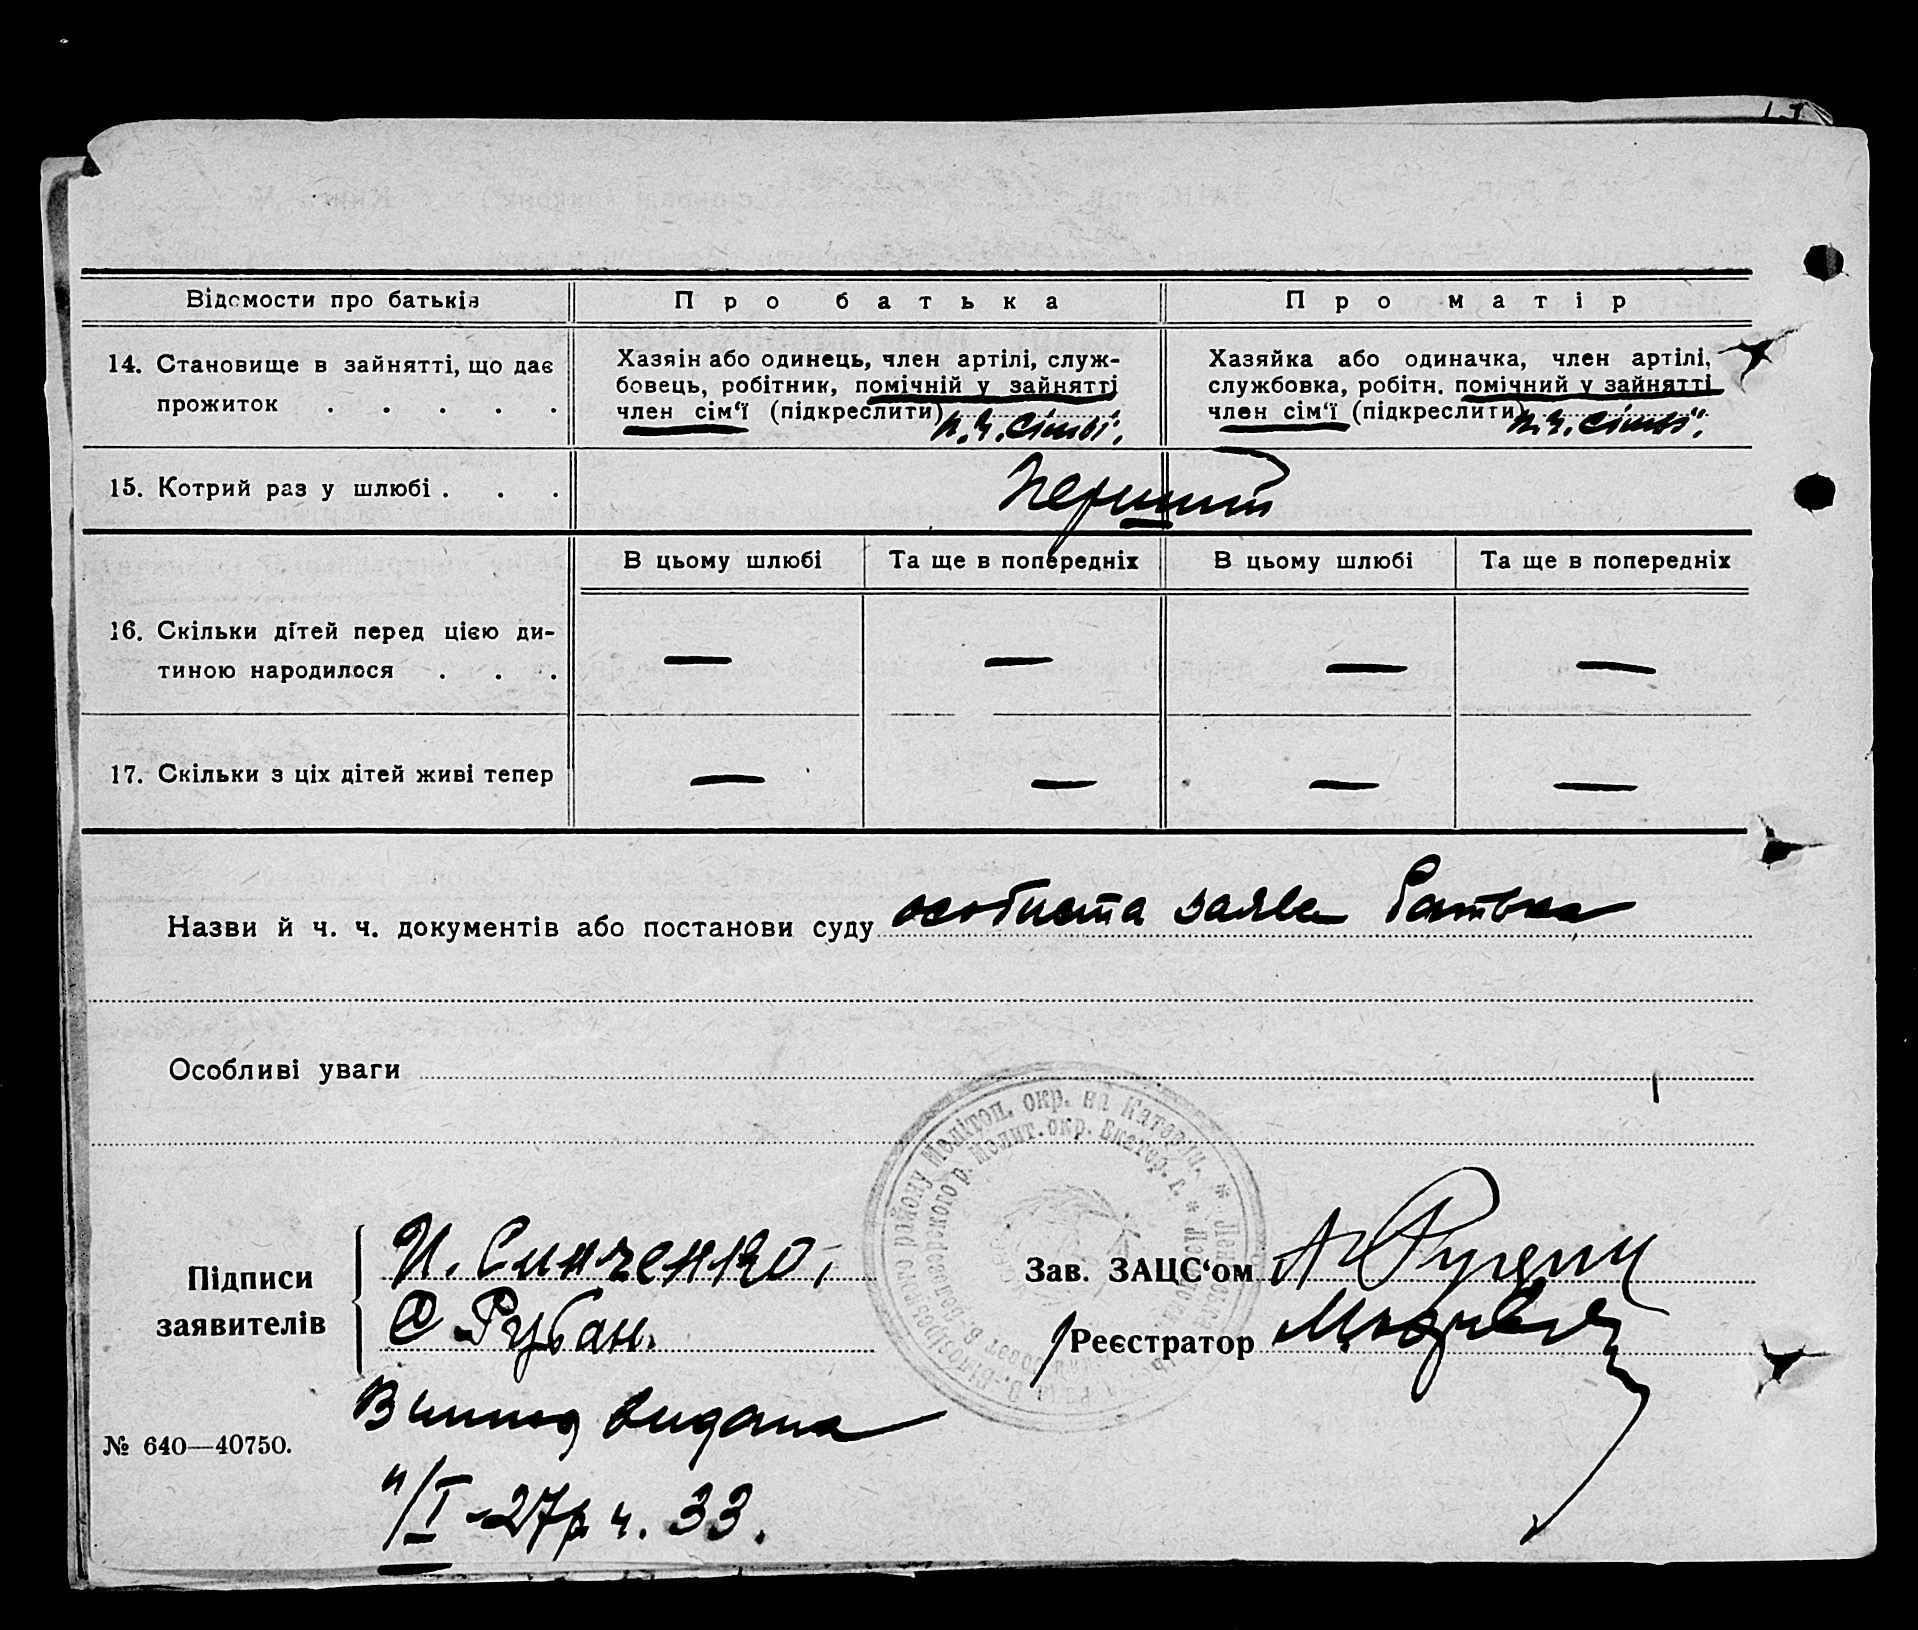 Відомости про батьків
Про батька
Про матір
14. Становище в зайнятті, що дає
прожиток . . . . .
Хазяїн або одинець, член артілі, служ-
бовець, робітник, помічній у зайнятті
член сім‘ї (підкреслити) п. ч. сімві.
Хазяйка або одиначка, член артілі,
службовка, робітн. помічний у зайнятті
член сім‘ї (підкреслити) п. ч. сімві.
15. Котрий раз у шлюбі . . .
перший
В цьому шлюбі
Та ще в попередніх
В цьому шлюбі
Та ще в попередніх
16. Скільки дітей перед цією ди-
тиною народилося . . .
— — — —
17. Скільки з ціх дітей живі тепер
— — — —
Назви й ч. ч. документів або постанови суду особиста заява батька
Особливі уваги
району Мелітоп. окр. на Катерин. * Ленінська
Белозерского р. Мелит. окр. Екатер. г. *
Підписи
заявителів
И. Синченко,
Рубан.
Зав. ЗАЦС‘ом
Реєстратор
Випись видана
11/I-27р ч. 33.
№ 640—40750.